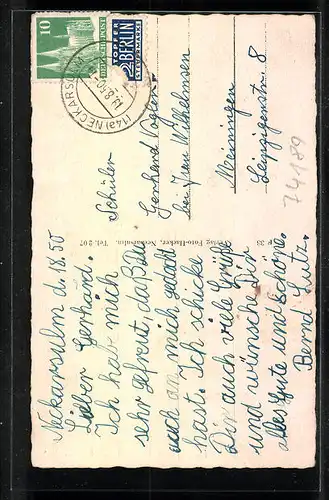 Neckarsulm d. 1.8.50
Lieber Gerhard.
Ich hab mich
sehr gefreut, daß Du
auch an mich gedacht
hast. Ich schicke
Dir auch viele Grüße
und wünsche Dir
alles Gute und Schöne.
Bernd Lutz.
Verlag Foto-Hacker, Neckarsulm. Tel. 207
33
10
DEUTSCHE POST
NOTOPFER
2 BERLIN
STEUERMARKE
(14a) NECKARSULM
Schüler
Gerhard
bei Frau Wilhelmsen
Meiningen
Leipzigerstr. 8
74189